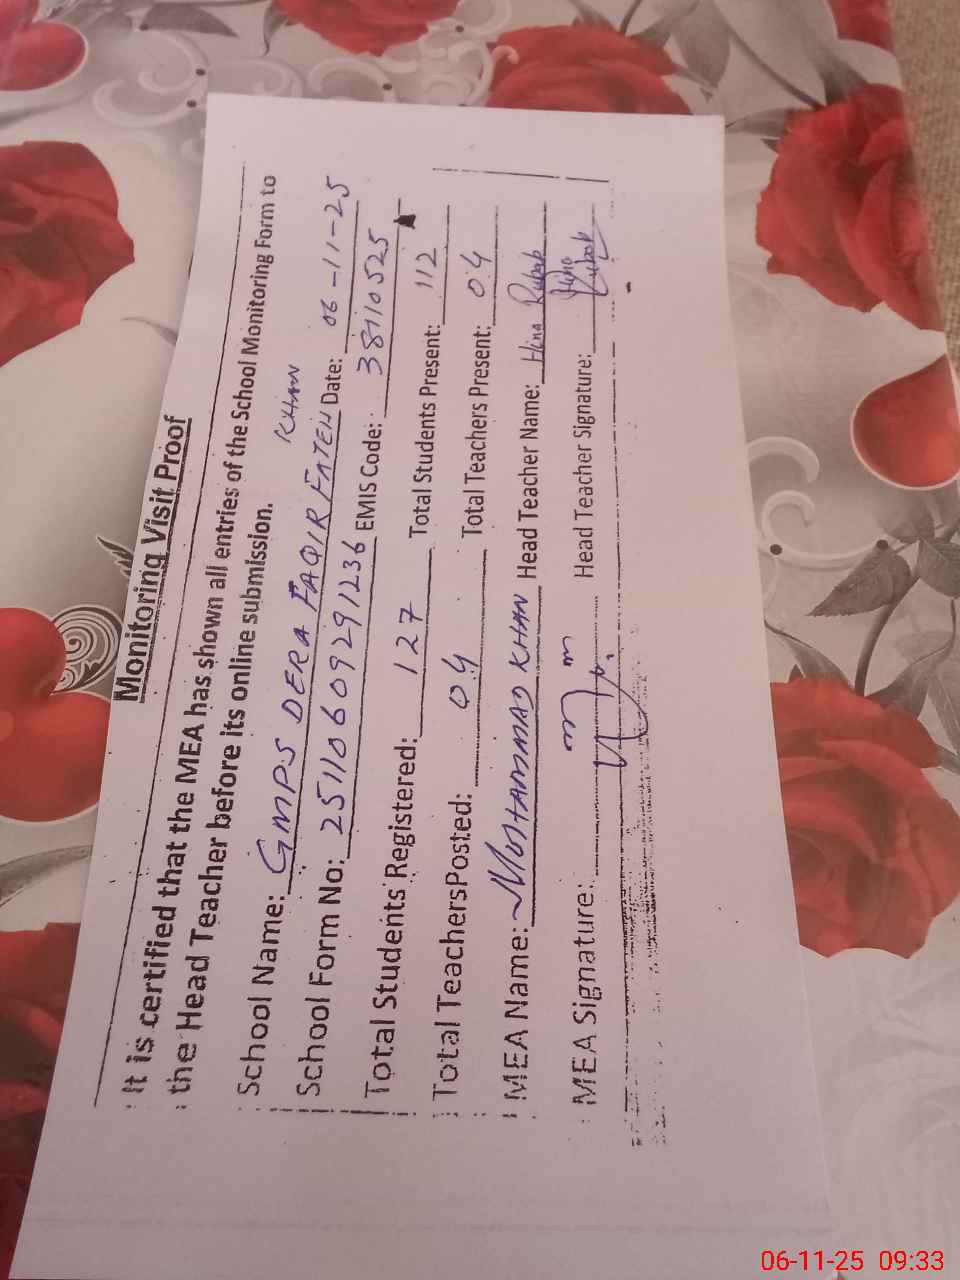 Monitoring Visit Proof
It is certified that the MEA has shown all entries of the School Monitoring Form to
the Head Teacher before its online submission.
School Name: GMPS DERA FAQIR FATEH KHAN Date: 06-11-25
School Form No: 25110609291236 EMIS Code: 38110525
Total Students Registered: 127 Total Students Present: 112
Total Teachers Posted: 04 Total Teachers Present: 04
MEA Name: MOHAMMAD KHAN Head Teacher Name: Hina Rubab
MEA Signature: Head Teacher Signature: Hina Rubab
06-11-25 09:33